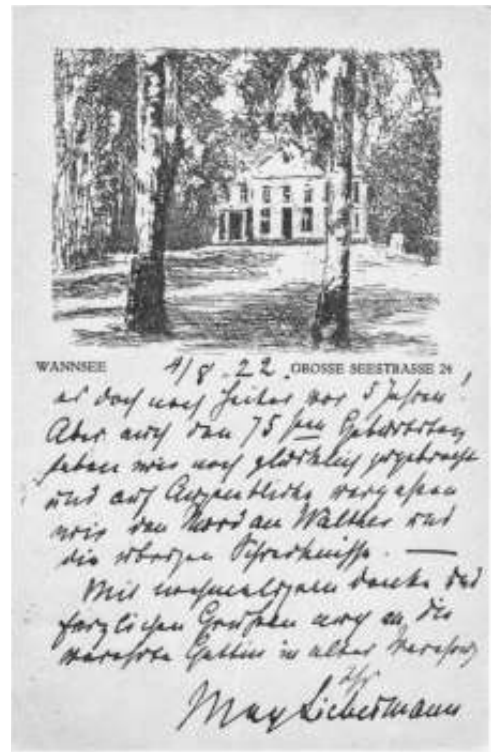 WANNSEE 4/8.22. GROSSE SEESTRASSE 24
es doch noch vor 5 Jahren!
Aber auch den 75sten Geburtstag
haben wir noch glücklich
und auf Augenblicke vergaßen
wir den Mord an Walther und
die übrigen Schrecknisse. —
Mit nochmaligem Danke und
herzlichen Grüßen auch an die
verehrte Gattin in alter Verehrung
Ihr
Max Liebermann